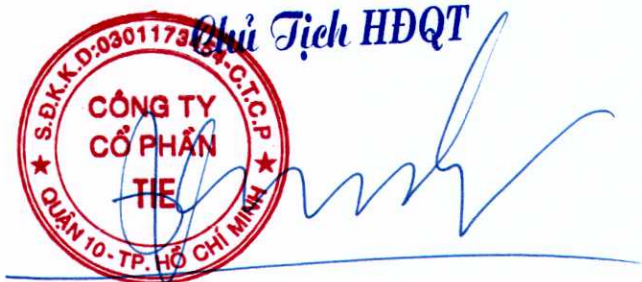 Chủ Tịch HĐQT
S.Đ.K.K.D:0301173 4-C.T.C.P
CÔNG TY
CỔ PHẦN
TIE
QUẬN 10 - TP. HỒ CHÍ MINH